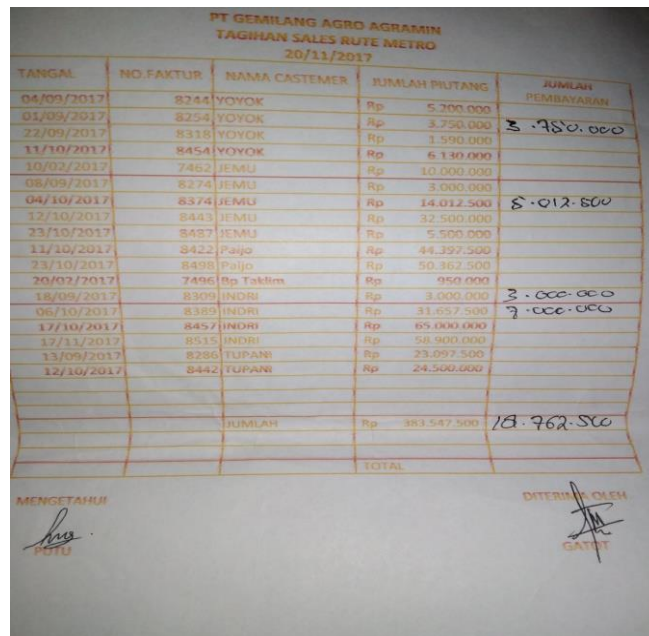 PT GEMILANG AGRO AGRAMIN
TAGIHAN SALES RUTE METRO
20/11/2017
TANGAL NO.FAKTUR NAMA CASTEMER JUMLAH PIUTANG JUMLAH PEMBAYARAN
04/09/2017 8244 YOYOK Rp 5.200.000
01/09/2017 8254 YOYOK Rp 3.750.000 3.750.000
22/09/2017 8318 YOYOK Rp 1.590.000
11/10/2017 8454 YOYOK Rp 6.130.000
10/02/2017 7462 JEMU Rp 10.000.000
08/09/2017 8274 JEMU Rp 3.000.000
04/10/2017 8374 JEMU Rp 14.012.500 5.012.500
12/10/2017 8443 JEMU Rp 32.500.000
23/10/2017 8487 JEMU Rp 5.500.000
11/10/2017 8422 Paijo Rp 44.397.500
23/10/2017 8498 Paijo Rp 50.362.500
20/02/2017 7496 Bp Taklim Rp 950.000
18/09/2017 8309 INDRI Rp 3.000.000 3.000.000
06/10/2017 8389 INDRI Rp 31.657.500 7.000.000
17/10/2017 8457 INDRI Rp 65.000.000
17/11/2017 8515 INDRI Rp 58.900.000
13/09/2017 8286 TUPANI Rp 23.097.500
12/10/2017 8442 TUPANI Rp 24.500.000
JUMLAH Rp 383.547.500 18.762.500
TOTAL
MENGETAHUI DITERIMA OLEH
PUTU GATOT